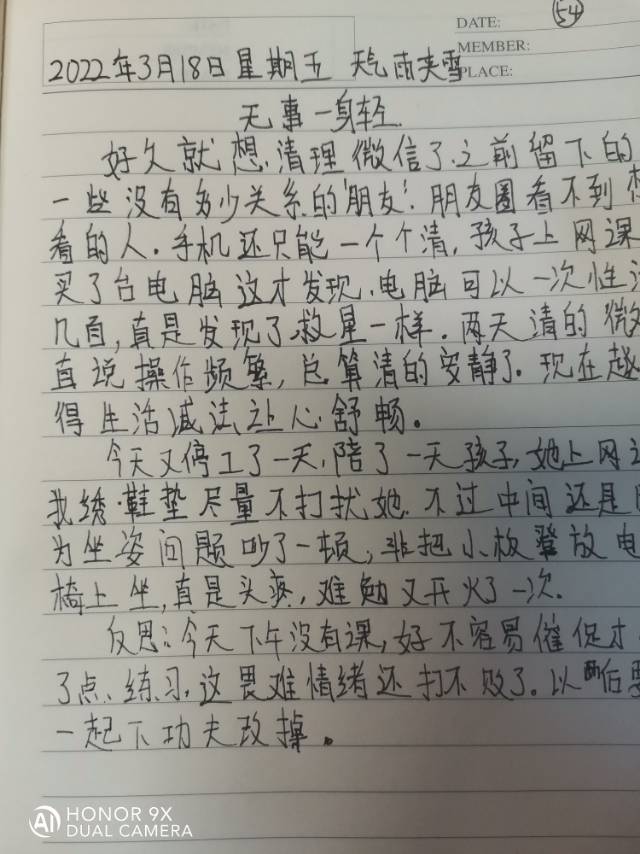 54
DATE:
MEMBER:
PLACE:
2022年3月18日星期五 天气雨夹雪
无事一身轻
好久就想清理微信了.之前留下的
一些没有多少关系的'朋友'.朋友圈看不到想
看的人.手机还只能一个个清,孩子上网课
买了台电脑这才发现.电脑可以一次性
几百,真是发现了救星一样.两天清的微
直说操作频繁,总算清的安静了.现在越
得生活减法让心舒畅。
今天又停工了一天,陪了一天孩子,她上网
我绣鞋垫尽量不打扰她.不过中间还是
为坐姿问题吵了一顿,非把小板凳放电
椅上坐,真是头疼,难勉又开火了一次.
反思:今天下午没有课,好不容易催促才
了点练习,这畏难情绪还打不败了.以后要
一起下功夫改掉。
AI HONOR 9X
DUAL CAMERA